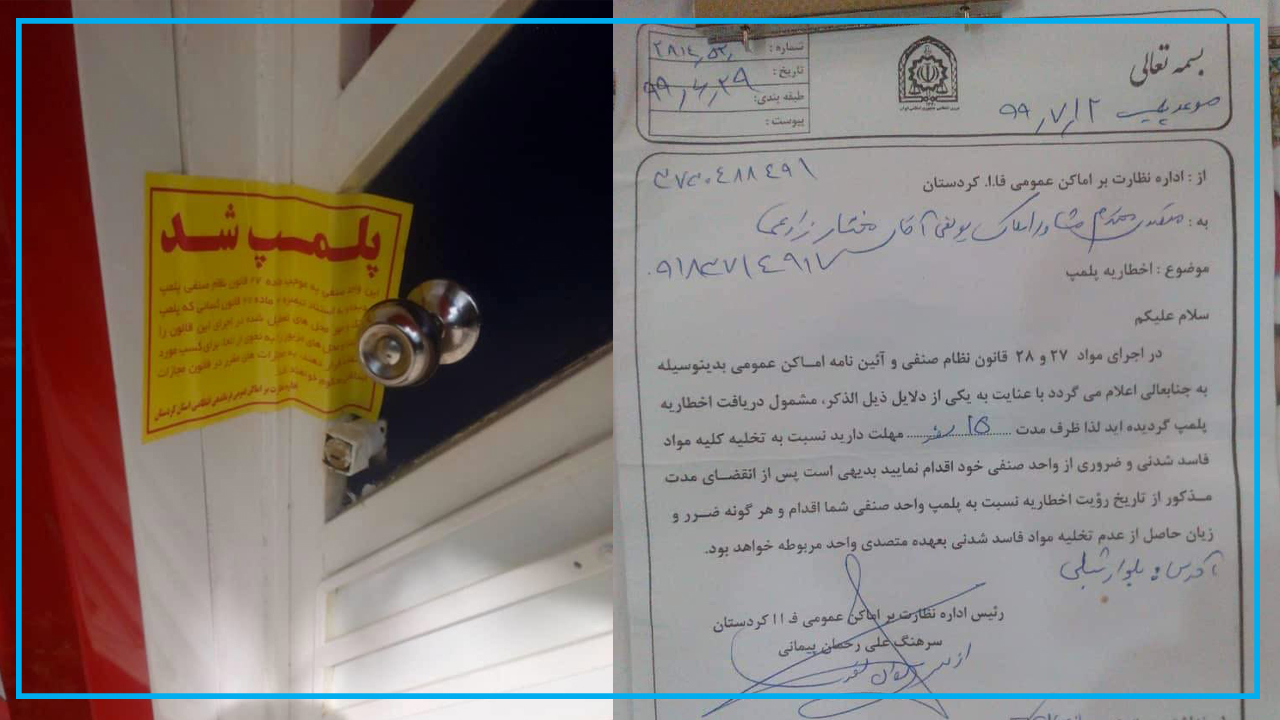 پلمپ شد
این واحد صنفی به موجب ماده ۲۷ قانون نظام صنفی پلمپ
بسمه تعالی
شماره :
تاریخ : ۹۹٫۴٫۲۹
طبقه بندی:
پیوست :
موعد پلمپ ۹۹٫۷٫۱۲
از : اداره نظارت بر اماکن عمومی فا.ا. کردستان
۳۷۳۰۴۸۸۴۹۱
به : متصدی محترم مشاور املاک یوفی آقای مختار زارعی
۰۹۱۸۳۷۱۴۹۱۷
موضوع : اخطاریه پلمپ
سلام علیکم
در اجرای مواد ۲۷ و ۲۸ قانون نظام صنفی و آئین نامه اماکن عمومی بدینوسیله
به جنابعالی اعلام می گردد با عنایت به یکی از دلایل ذیل الذکر، مشمول دریافت اخطاریه
پلمپ گردیده اید لذا ظرف مدت ۱۵ روز مهلت دارید نسبت به تخلیه کلیه مواد
فاسد شدنی و ضروری از واحد صنفی خود اقدام نمایید بدیهی است پس از انقضای مدت
مذکور از تاریخ رؤیت اخطاریه نسبت به پلمپ واحد صنفی شما اقدام و هر گونه ضرر و
زیان حاصل از عدم تخلیه مواد فاسد شدنی بعهده متصدی واحد مربوطه خواهد بود.
آدرس : بلوار شبلی
رئیس اداره نظارت بر اماکن عمومی ف ا ا کردستان
سرهنگ علی رحمان پیمانی